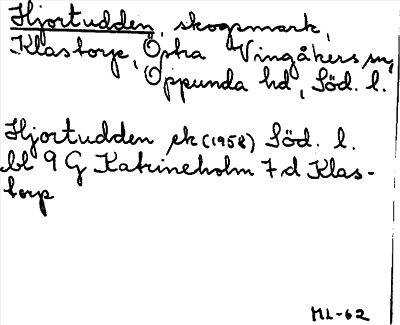 Hjortudden, skogsmark,
Klastorp, Östra Vingåkers sn,
Oppunda hd, Söd. l.
Hjortudden ek (1958) Söd. l.
bl 9 G Katrineholm 7 d Klas-
torp
ML-62